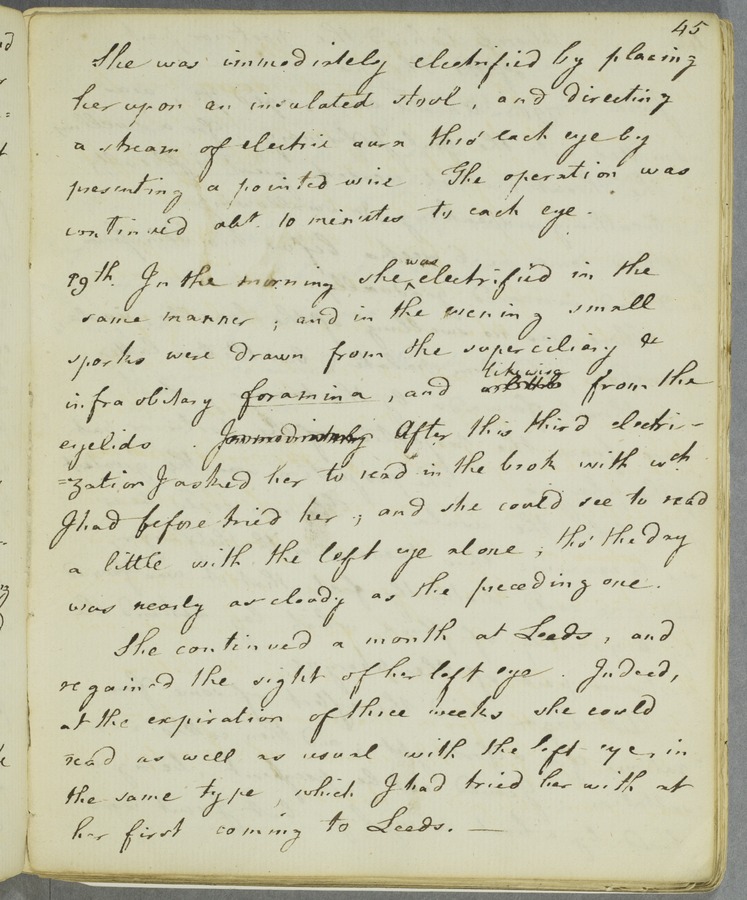 45
She was immediately electrified by placing
her upon an insulated stool, and directing
a stream of electric aura thro' each eye by
presenting a pointed wire The operation was
continued abt. 10 minutes to each eye.
19th. In the morning she was electrified in the
same manner; and in the evening small
sparks were drawn from the superciliary &
infra orbitary foramina, and likewise from the
eyelids. Immediately After this third electri-
=zation I asked her to read in the book with wch
I had before tried her; and she could see to read
a little with the left eye alone; tho' the day
was nearly as cloudy as the preceding one.
She continued a month at Leeds, and
regained the sight of her left eye. Indeed,
at the expiration of three weeks she could
read as well as usual with the left eye, in
the same type, which I had tried her with at
her first coming to Leeds. —